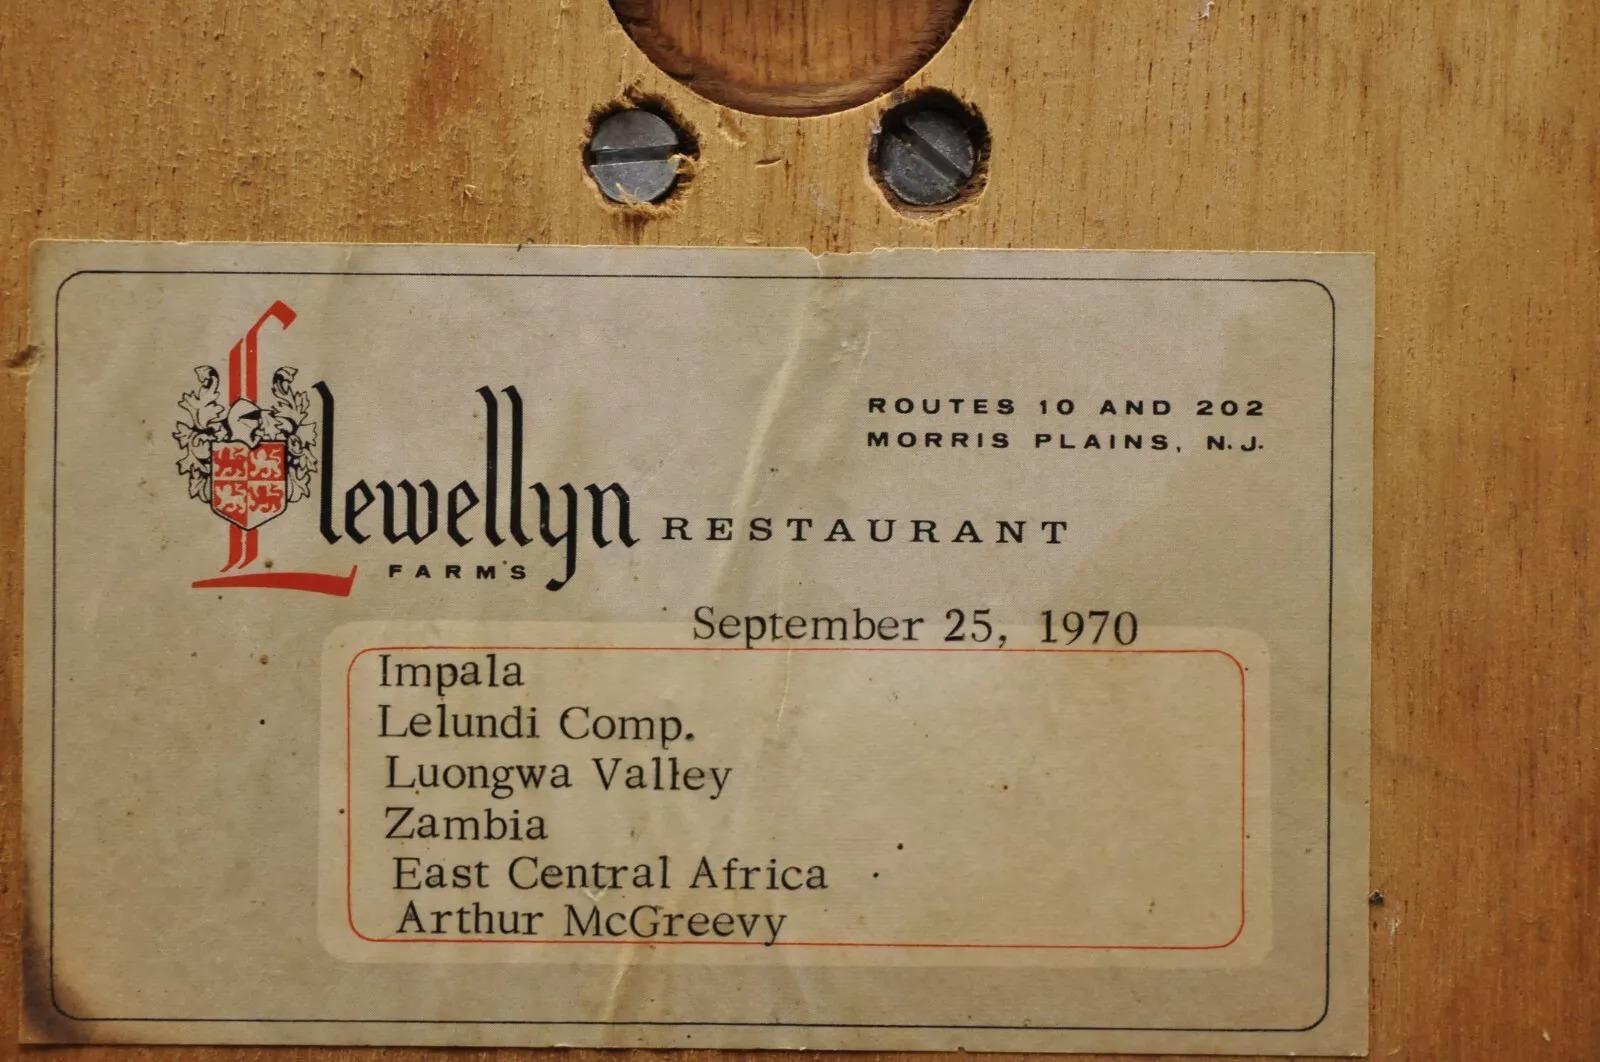 Llewellyn RESTAURANT
FARMS
ROUTES 10 AND 202
MORRIS PLAINS, N.J.
September 25, 1970
Impala
Lelundi Comp.
Luongwa Valley
Zambia
East Central Africa
Arthur McGreevy